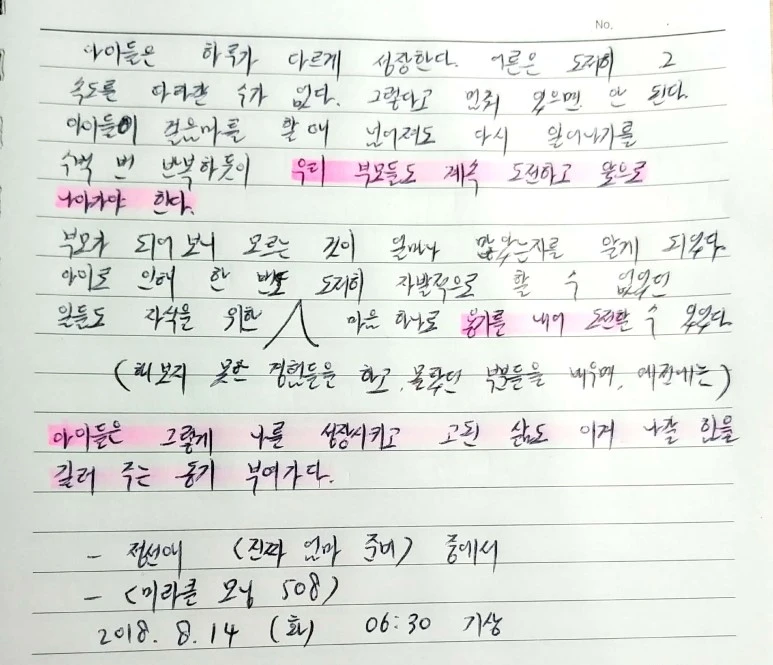 No.
아이들은 하루가 다르게 성장한다. 어른은 도저히 그
속도를 따라갈 수가 없다. 그렇다고 멈춰 있으면 안 된다.
아이들이 걸음마를 할 때 넘어져도 다시 일어나기를
수백 번 반복하듯이 우리 부모들도 계속 도전하고 앞으로
나아가야 한다.
부모가 되어 보니 모르는 것이 얼마나 많았는지를 알게 되었다.
아이로 인해 한 번도 도저히 자발적으로 할 수 없었던
일들도 자식을 위한 마음 하나로 용기를 내어 도전할 수 있었다.
(해보지 못한 경험들을 하고, 몰랐던 부분들을 배우며, 예전에는)
아이들은 그렇게 나를 성장시키고 고된 삶도 이겨 나갈 힘을
길러 주는 동기 부여가다.
- 정선애 <진짜 엄마 준비> 중에서
- <미라클 모닝 508>
2018. 8. 14 (화) 06:30 기상